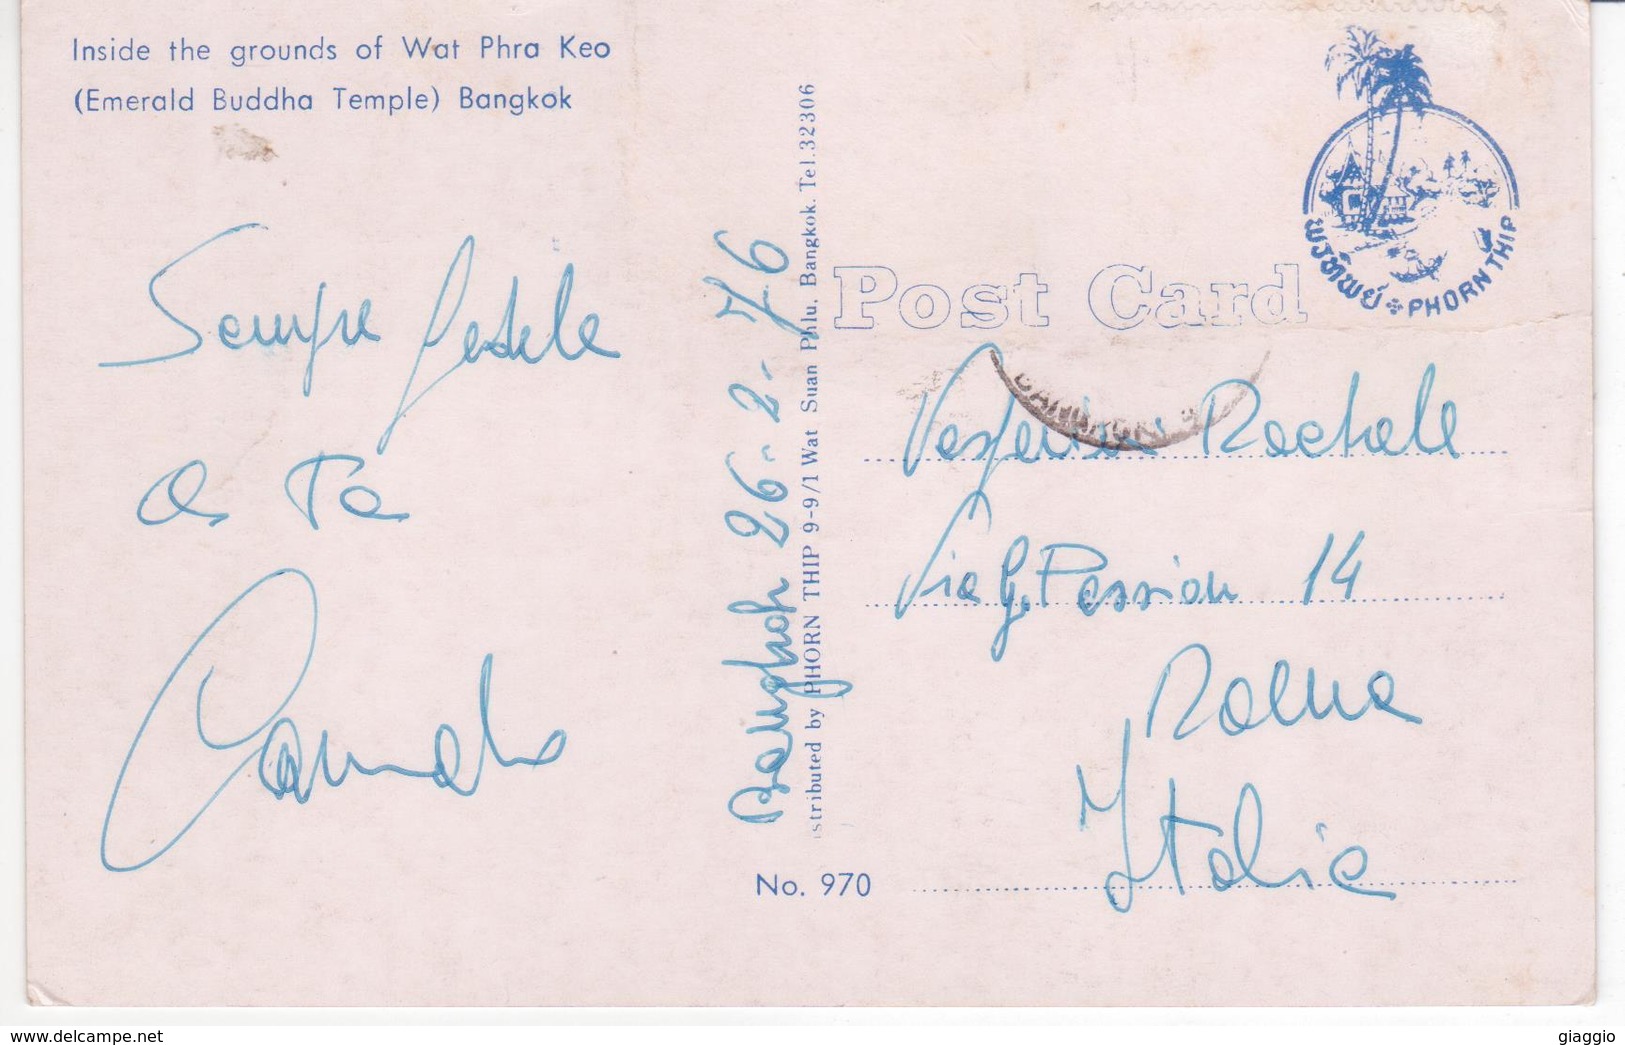 Inside the grounds of Wat Phra Keo
(Emerald Buddha Temple) Bangkok
Sempre fedele
a Te
Bangkok 26-2-76
stributed by PHORN THIP 9-9/1 Wat Suan Phlu, Bangkok. Tel.32306
No. 970
พรทิพย์ PHORN THIP
Post Card
BANGKOK
Rachele
Via G. 14
Roma
Italia
delcampe.net
giaggio